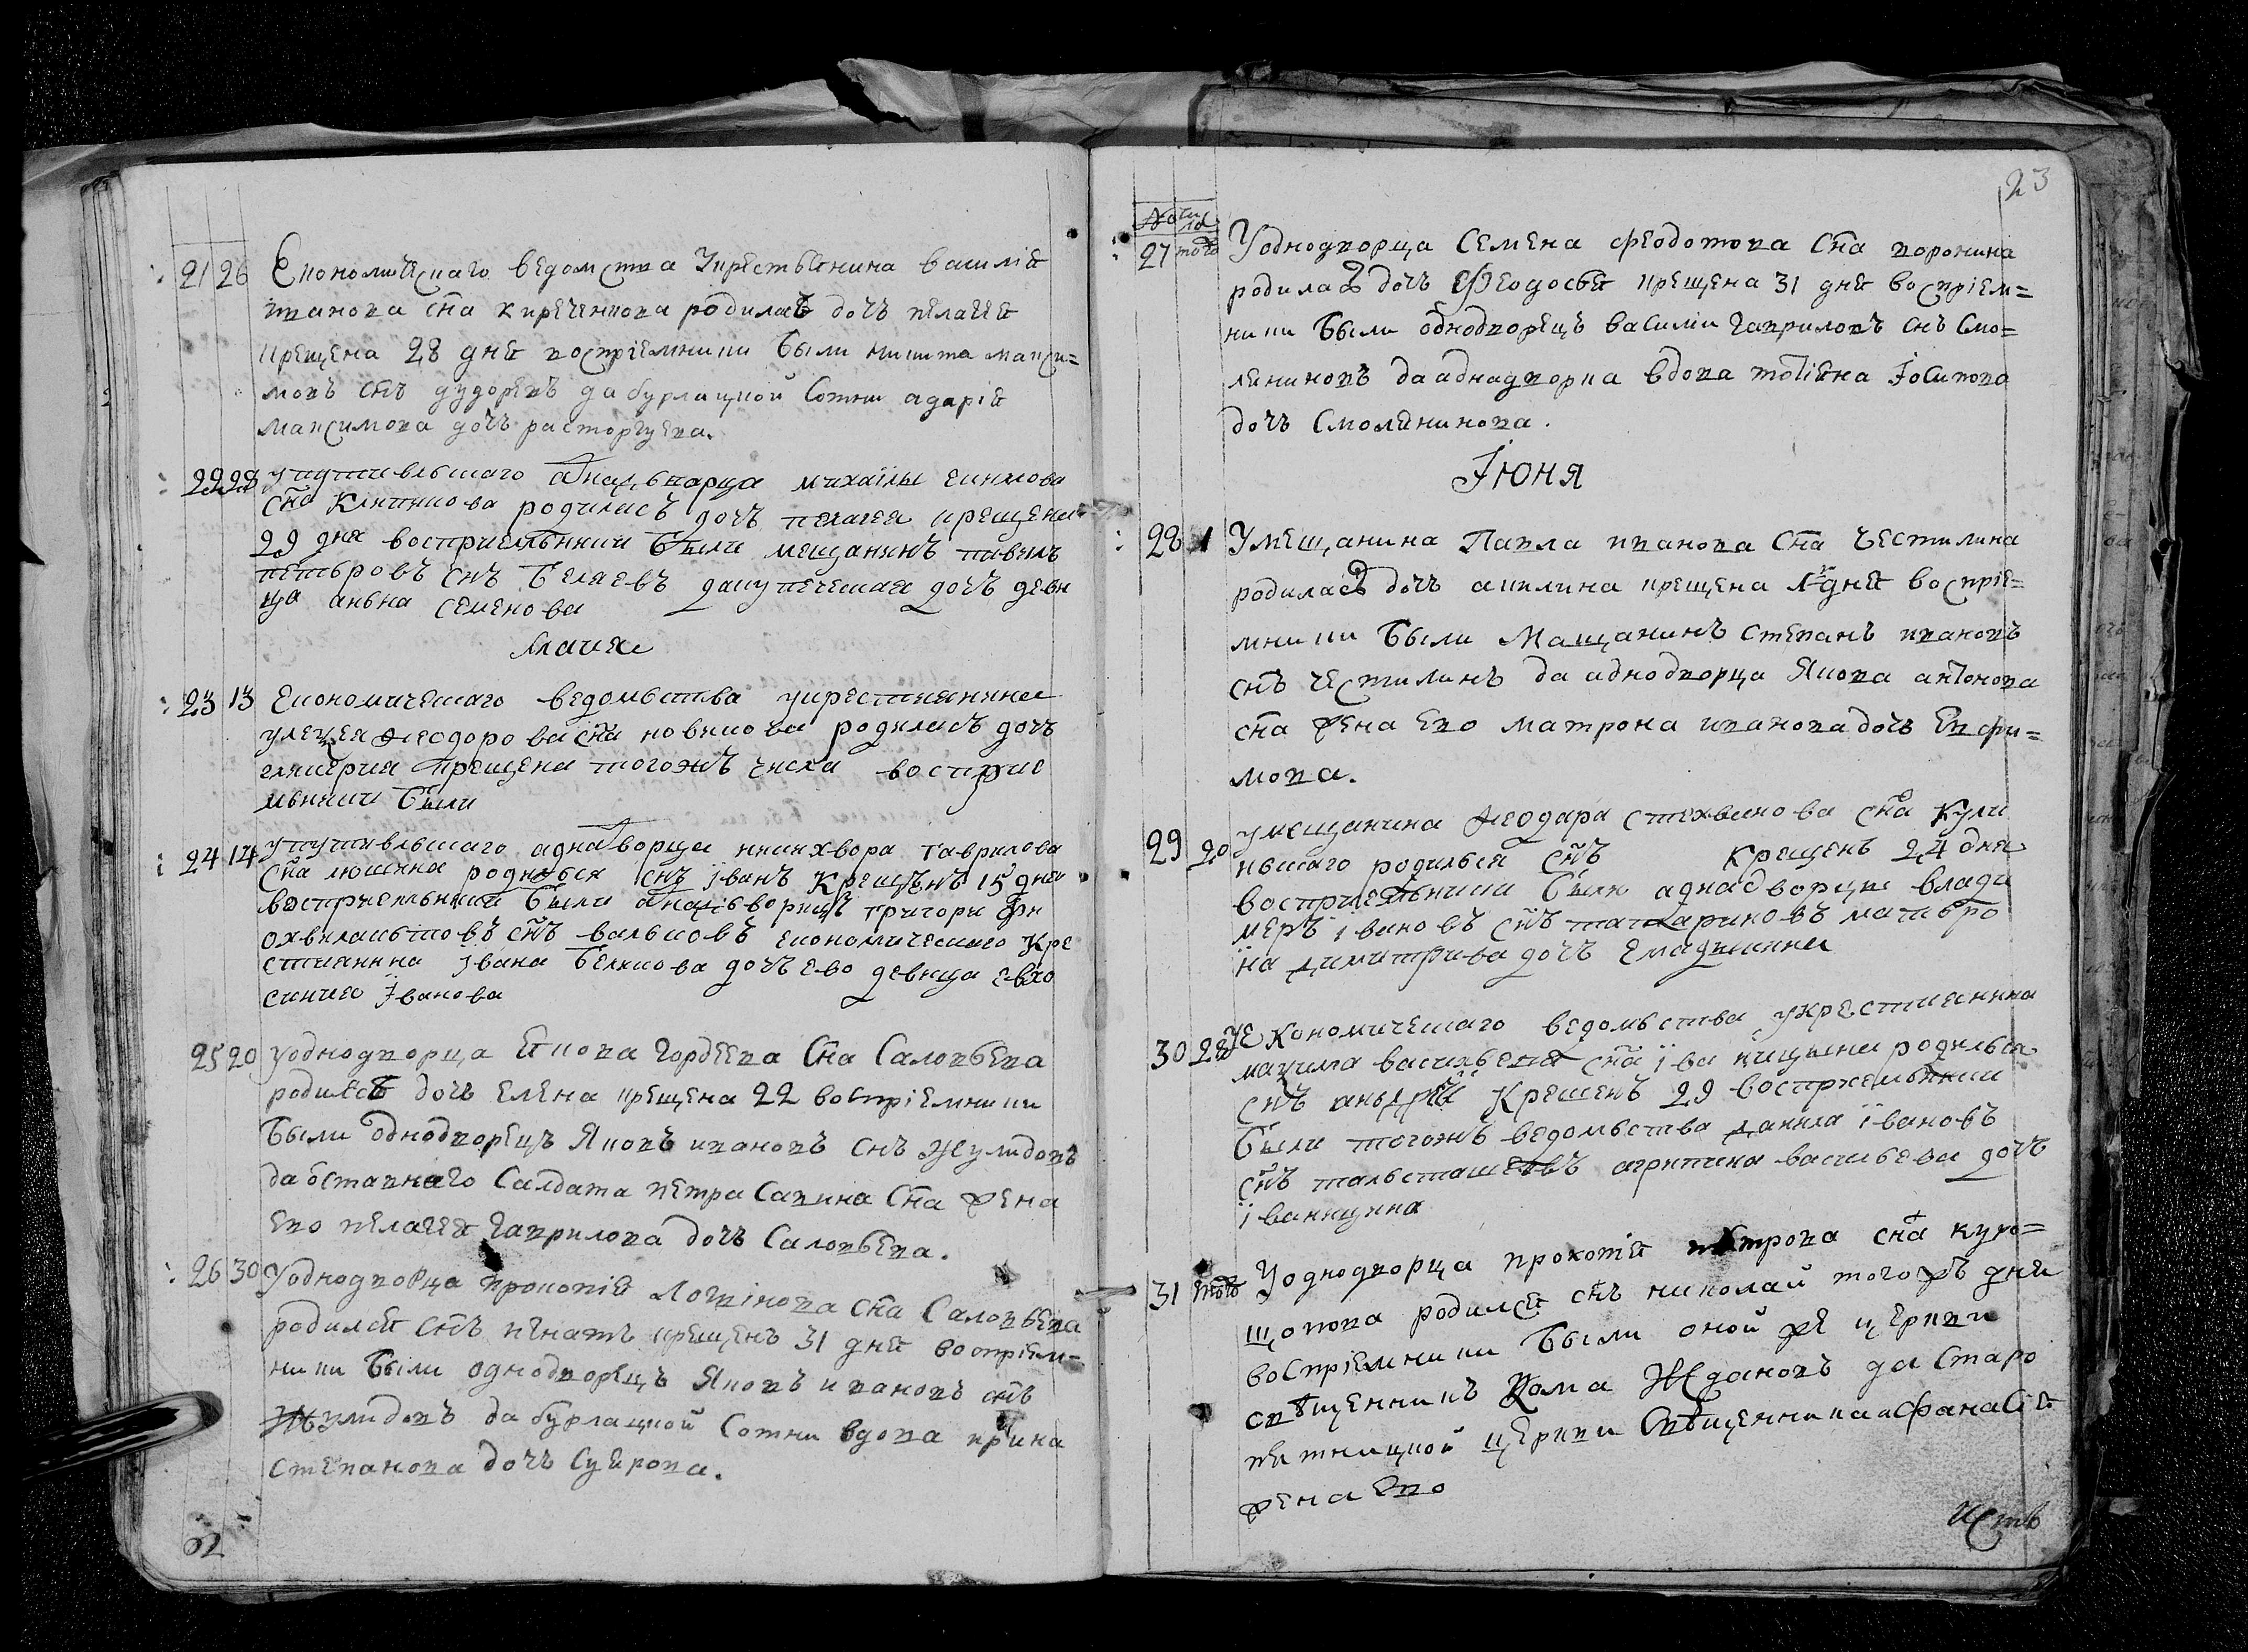 21 26 Економическаго ведомства Укрестьянина василия
иванова сна киреченкова родилась дочъ пелагея
крещена 28 дня восприемники были никита макси=
мовъ снъ дударевъ да бурлацкой Сотни адария
максимова дочъ расторгуева.
22 28 упутивльшаго аднадворца михаилы екимова
сна Клепикова родиласъ дочъ пелагея крещена
29 дня восприемьники были мещанинъ павелъ
петьровъ снъ беляевъ дочъ деви
ца аньна семенова
маия
23 13 Економическаго ведомьства укрестиянина
улецея феодорова сна новикова родиласъ дочъ
гликерия крещена тогожъ числа восприе
мьники были
24 14 упутивльшаго аднадворца никихвора гаврилова
сна люшина родилься снъ iванъ крещенъ 15 дня
восприемьники были аднадворецъ григори фи
охвилактовъ снъ вальковъ економическаго кре
стиянина iвана белкова дочъ ево девица евхо
синия iванова
25 20 Уоднодворца Якова гордеева Сна Саловьева
родилась дочъ елена крещена 22 восприемники
были однодворецъ Яковъ ивановъ снъ Жулидовъ
да отставнаго Салдата петра Савина Сна жена
ево пелагея гаврилова дочъ Саловьева.
26 30 Уоднодворца прокопия логвинова сна Саловьева
родился снъ игнатъ крещенъ 31 дня восприем=
ники были однодворецъ Яковъ ивановъ снъ
Жулидовъ да бурлацкой Сотни вдова ирина
Степанова дочъ Суярова.
23
№ чи сла
27 тогож Уоднодворца Семена феодотова Сна воронина
родилась дочъ феодосья крещена 31 дня восприем=
ники были однодворецъ василии гавриловъ снъ Смо=
лениновъ да аднадворка вдова татияна Иосипова
дочъ Смолянинова.
Июня
28 1 Умещанина Павла иванова Сна честилина
родилась дочъ акилина крещена 1го дня восприе=
мники были Мащанинъ Степанъ ивановъ
снъ честилинъ да аднодворца Якова антонова
сна жена ево матрона иванова дочъ Евфи=
мова.
29 20 умещанина феодара стехванова сна Кули
ньшаго родилься снъ крещенъ 24 дня
восприемьники были аднадворцы влади
меръ iвановъ снъ татариновъ матьро
на димитрива дочъ
30 28 УЕкономическаго ведомьства укрестиянина
васильева сна родилься
снъ аньдрей Крещенъ 29 восприемьники
были тогожъ ведомьства данила iвановъ
снъ агрипина васильева дочъ
iванищина
31 тогож Уоднодворца прокопия петрова сна куро=
щопова родился снъ николай того жъ дня
восприемники были оной же церкви
священникъ Кома Ждановъ да Старо
пятницкой церкви Священника афанасия
жена ево
исть